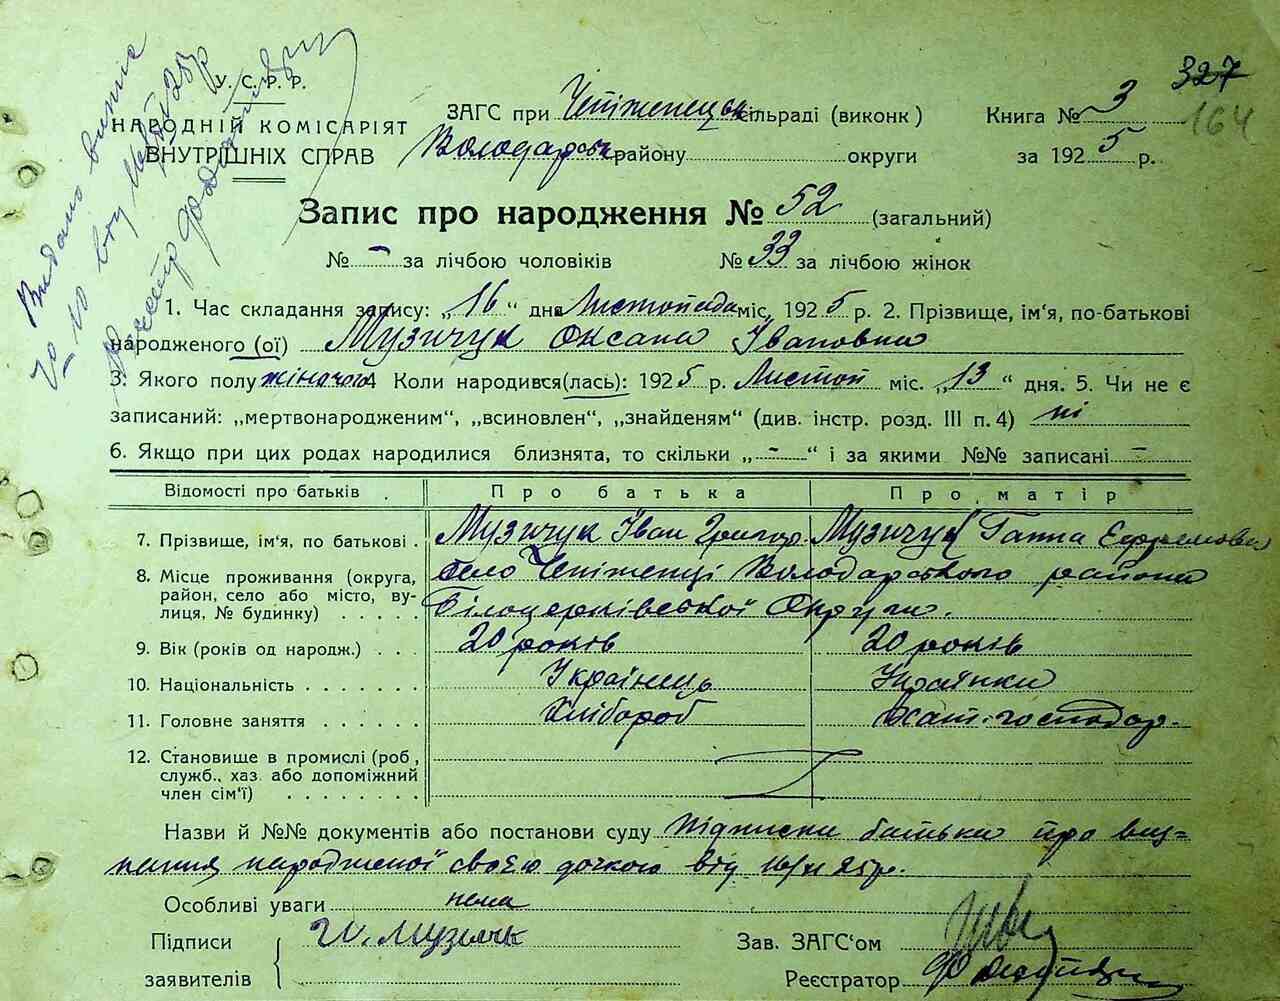 327
164
У. С. Р. Р.
НАРОДНІЙ КОМІСАРІЯТ
ВНУТРІШНІХ СПРАВ
ЗАГС при Чепіженецьк сільраді (виконк) Книга № 3
Володарськ району округи за 1925 р.
Запис про народження № 52 (загальний)
№ - за лічбою чоловіків № 33 за лічбою жінок
1. Час складання запису: „16" дня Листопада міс, 1925 р. 2. Прізвище, ім'я, по-батькові
народженого (ої) Музичук Оксана Івановна
3. Якого полу жіночого 4 Коли народився(лась): 1925 р. Листоп міс. „13" дня. 5. Чи не є
записаний: „мертвонародженим", „всиновлен", „знайденям" (див. інстр. розд. III п. 4) ні
6. Якщо при цих родах народилися близнята, то скільки „-" і за якими №№ записані -
Відомості про батьків . Про батька Про матір
7. Прізвище, ім'я, по батькові . Музичук Іван Григор. Музичук Ганна Єфремовна
8. Місце проживання (округа, село Чепіженці Володарського району
район, село або місто, ву-
лиця, № будинку) . . . . . Білоцерківської Округи.
9. Вік (років од народж.) . . . 20 років 20 років
10. Національність . . . . . . . Українець Українка
11. Головне заняття . . . . . . Хлібороб Хат. господар.
12. Становище в промислі (роб,
служб., хаз. або допоміжний
член сім'ї) . . . . . . . .
Назви й №№ документів або постанови суду Підписки батька про виз=
нання народженої своєю дочкою від 16/XI 25 р.
Особливі уваги нема
Підписи Ів. Музичук Зав. ЗАГС'ом
заявителів Реєстратор